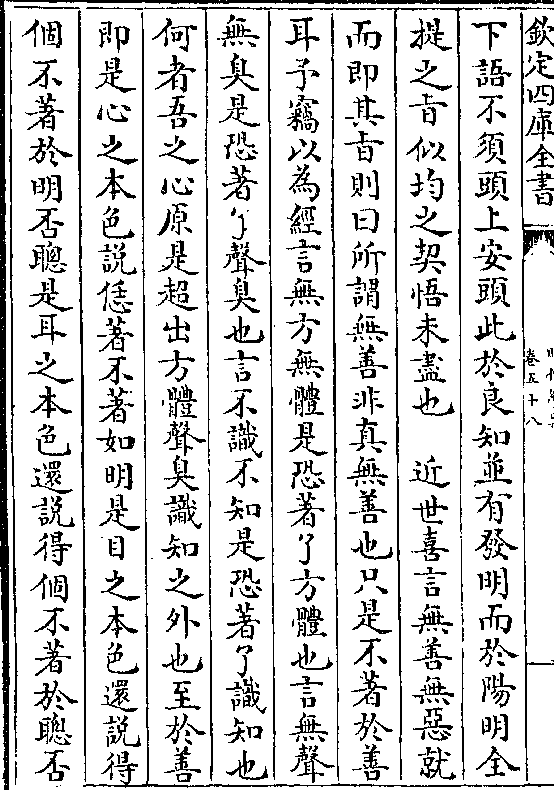 欽定四庫全書
卷五十八
下語不須頭上安頭此於良知並有發明而於陽明全
提之㫖似均之契悟未盡也　近世喜言無善無惡就
而即其㫖則曰所謂無善非真無善也只是不著於善
耳予竊以為經言無方無體是恐著了方體也言無聲
無臭是恐著了聲臭也言不識不知是恐著了識知也
何者吾之心原是超出方體聲臭識知之外也至於善
即是心之本色說恁著不著如明是目之本色還說得
個不著於明否聰是耳之本色還說得個不著於聰否